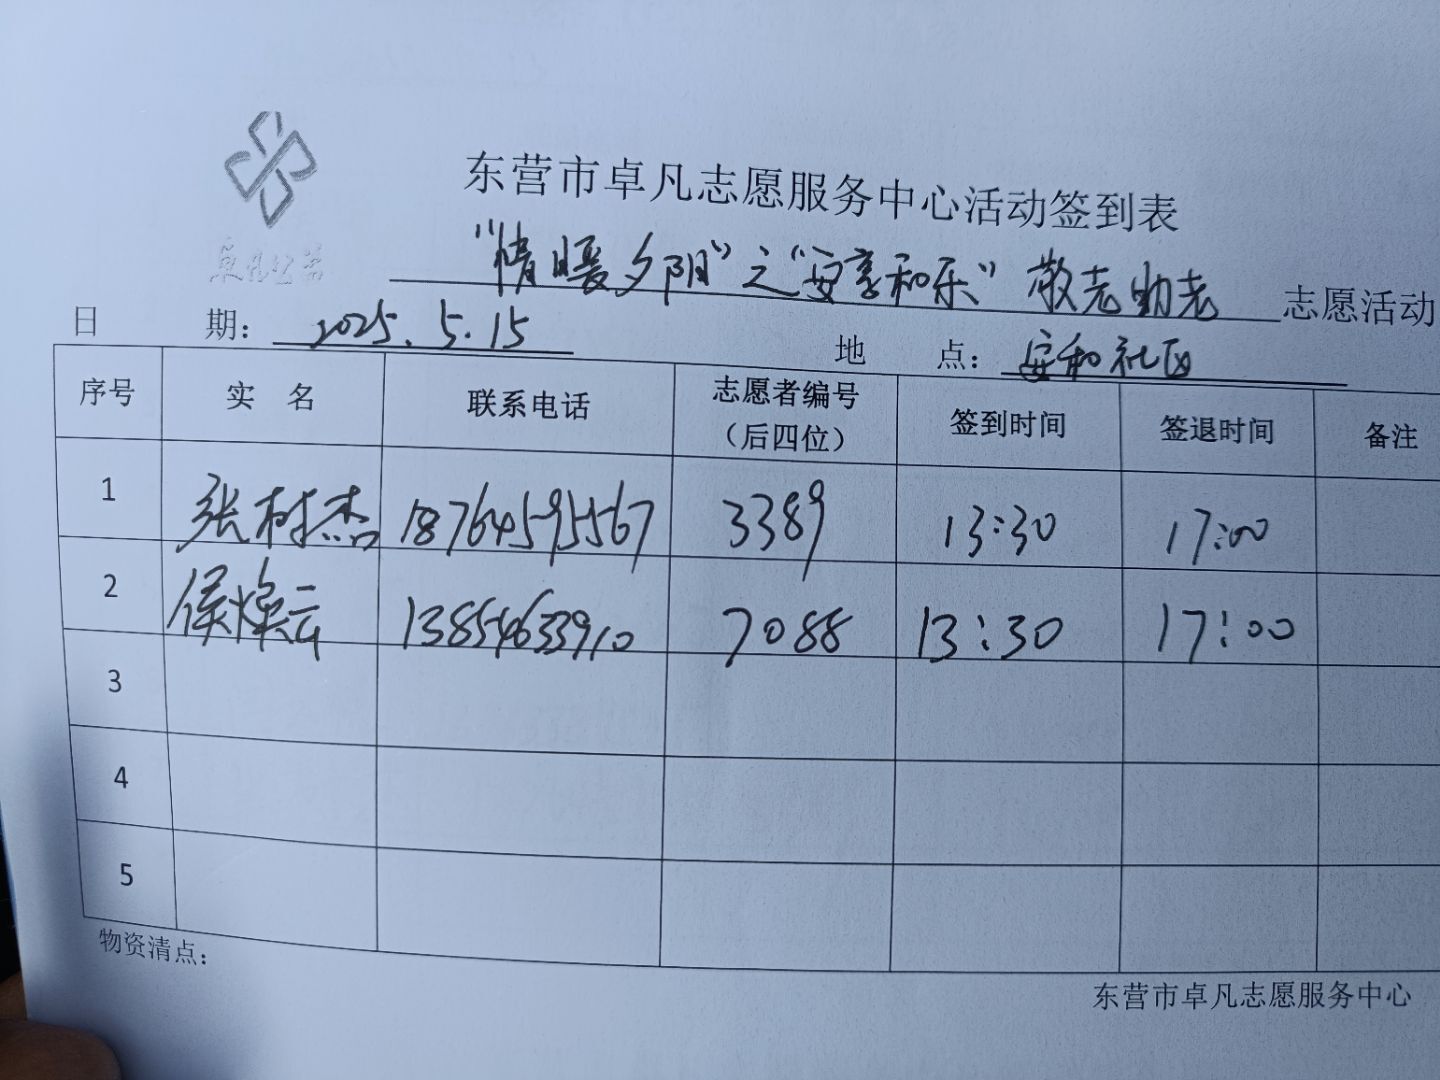 东营市卓凡志愿服务中心活动签到表
卓凡公益
"情暖夕阳"之"安享和乐"敬老助老 志愿活动
日 期: 2025.5.15 地 点: 安和社区
序号 实 名 联系电话 志愿者编号（后四位） 签到时间 签退时间 备注
1 张树杰 18764595567 3389 13:30 17:00
2 侯焕云 13854633910 7088 13:30 17:00
3
4
5
物资清点:
东营市卓凡志愿服务中心